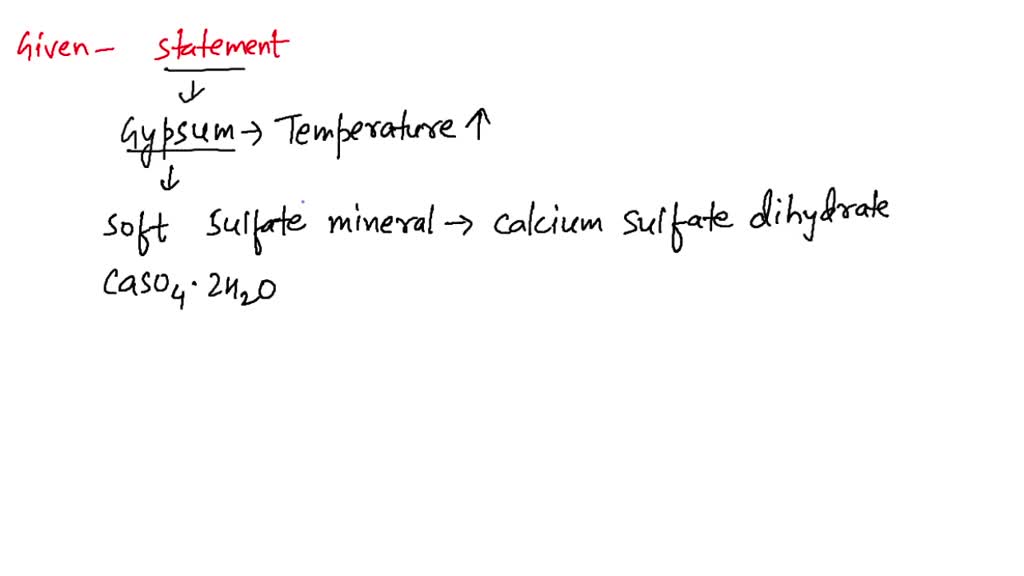 Given - statement
↓
Gypsum → Temperature ↑
↓
soft sulfate mineral → calcium sulfate dihydrate
CaSO4 · 2H2O